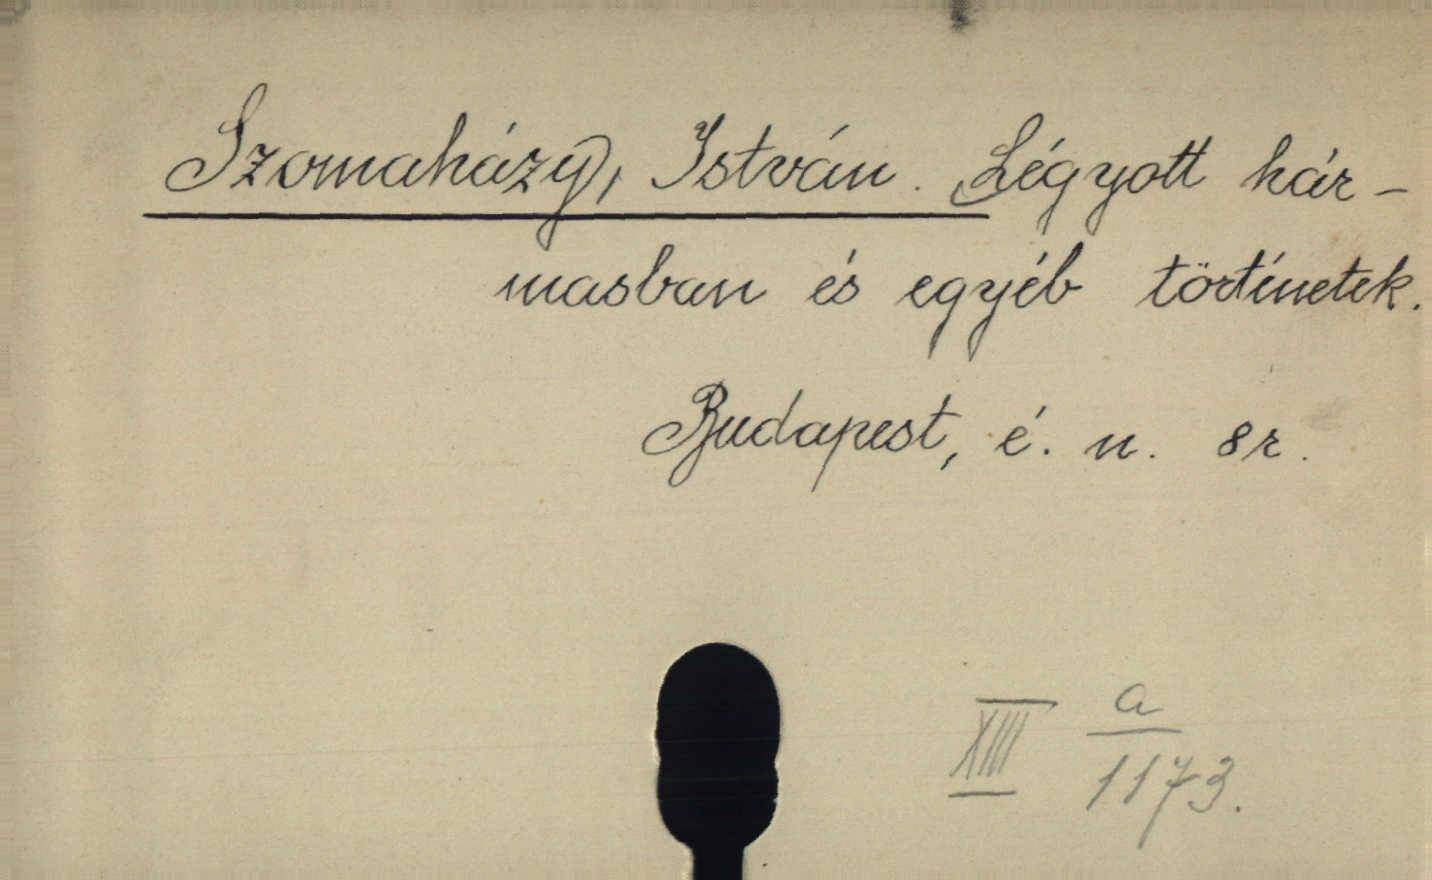 Szomaházy, István. Légyott hár-
masban és egyéb történetek.
Budapest, é. n. 8r.
XIII a
1173.